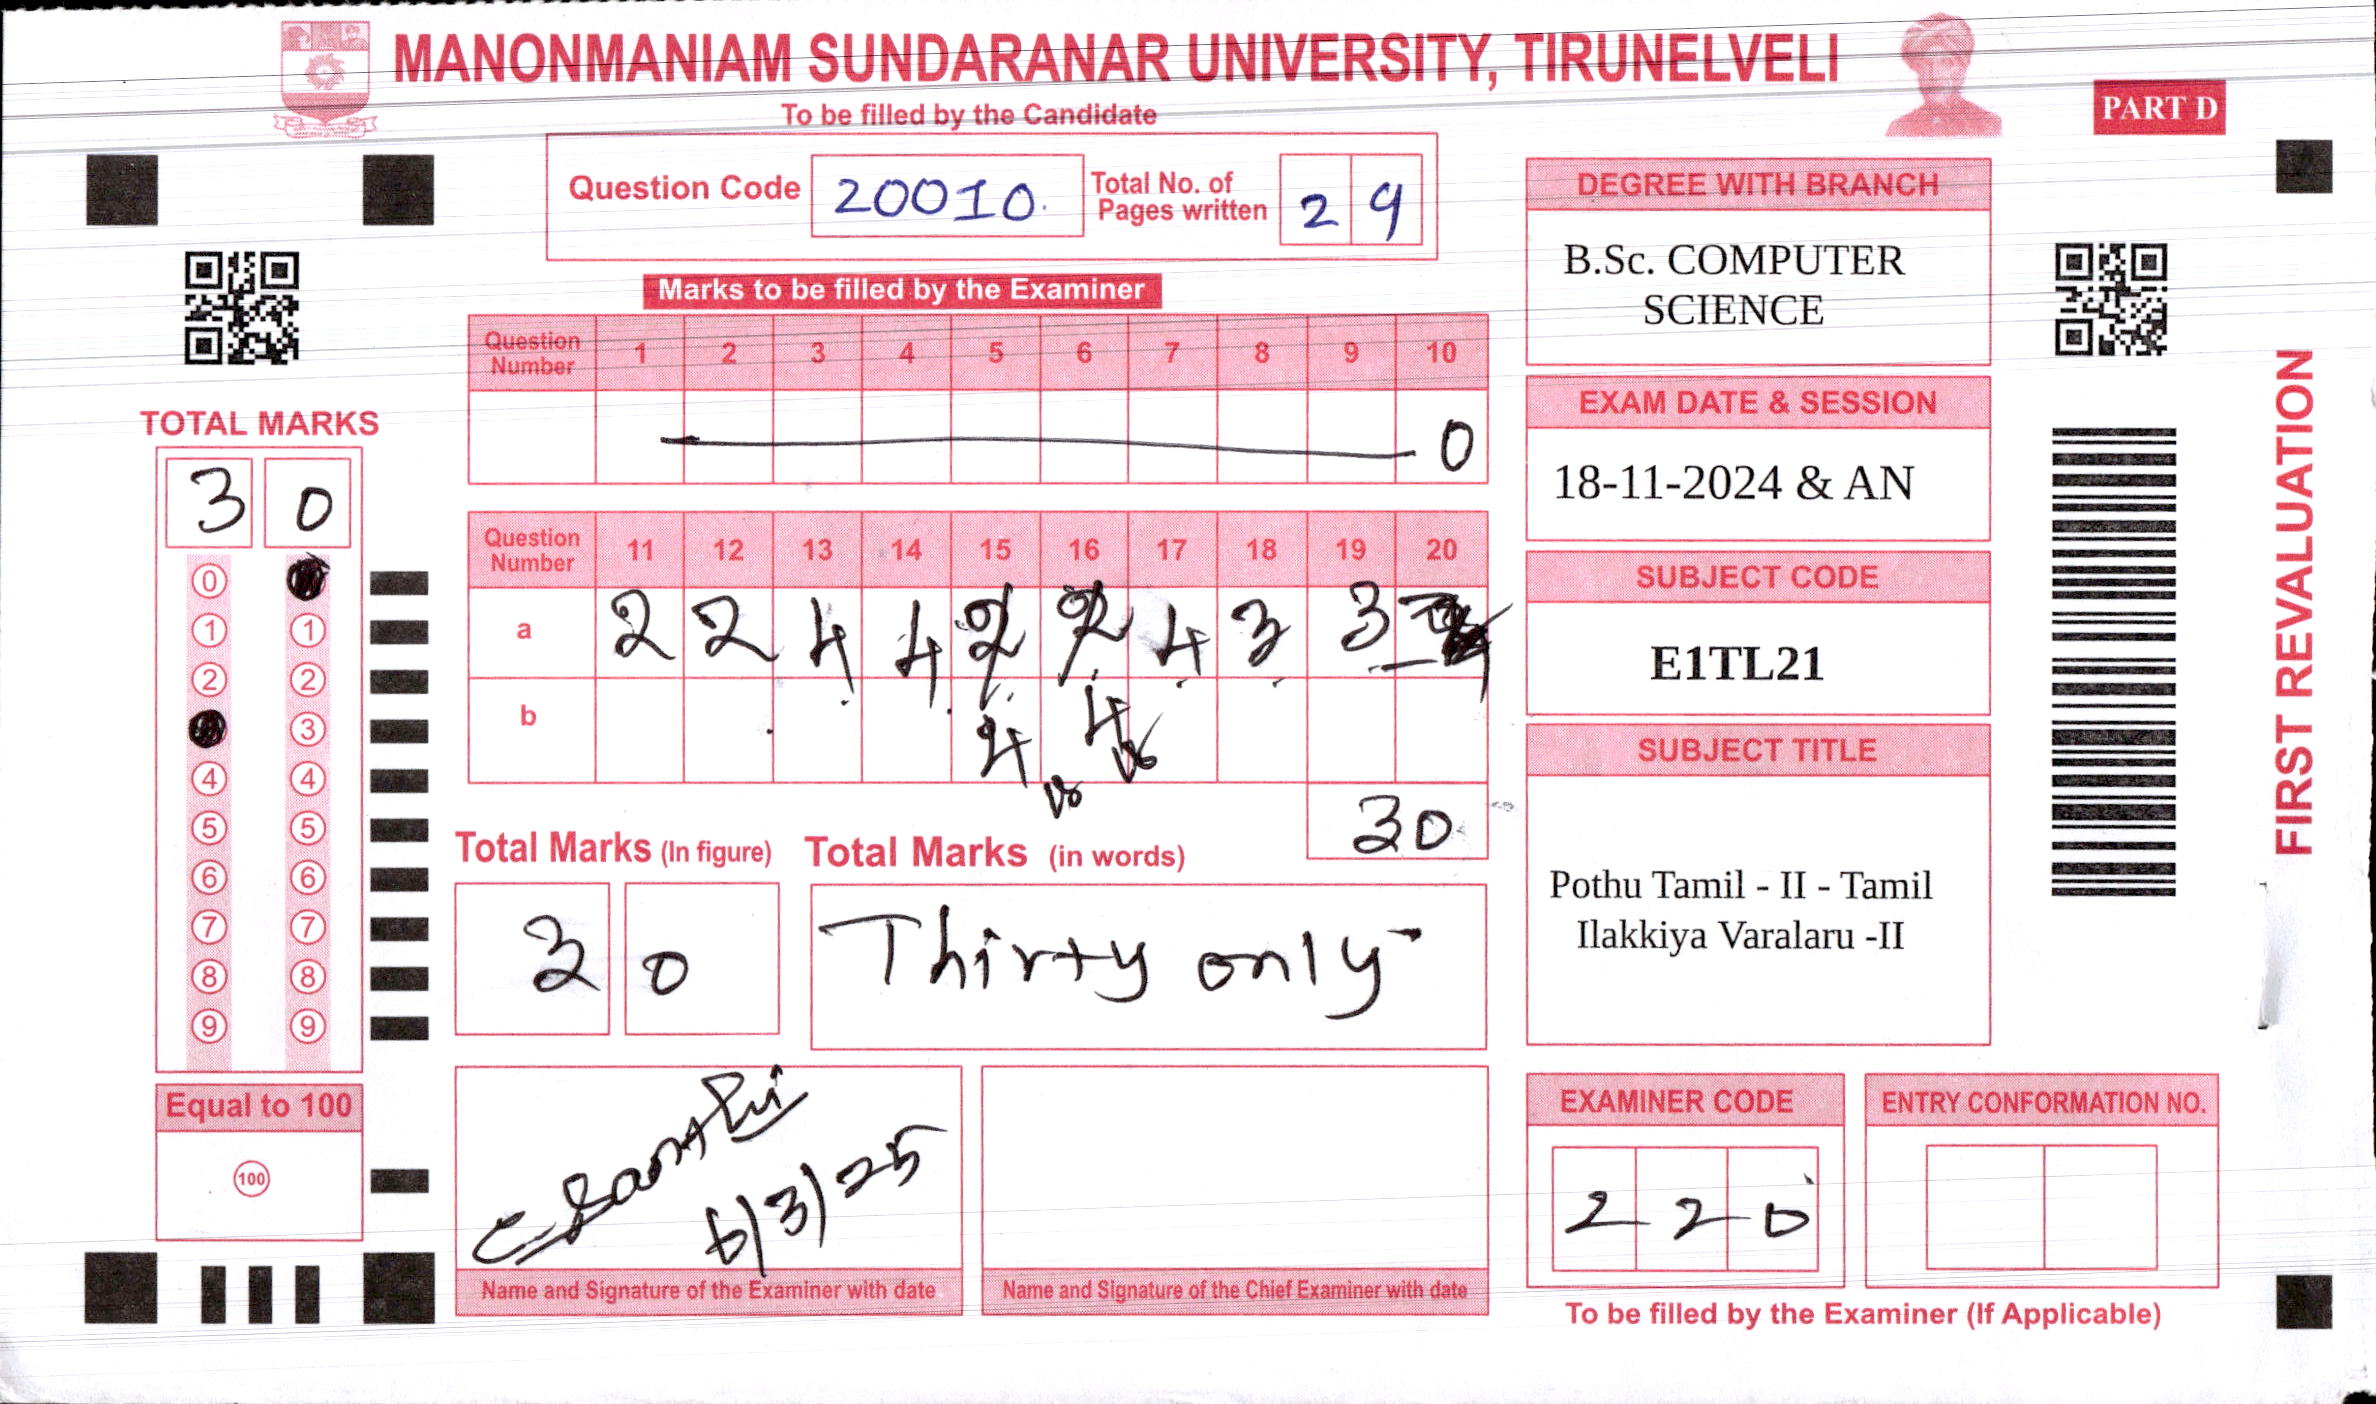 MANONMANIAM SUNDARANAR UNIVERSITY, TIRUNELVELI
PART D
To be filled by the Candidate
Question Code 20010. Total No. of Pages written 2 9
Marks to be filled by the Examiner
Question Number 1 2 3 4 5 6 7 8 9 10
0
Question Number 11 12 13 14 15 16 17 18 19 20
a 2 2 4 4 2 2 4 3 3
b 4 4
30
TOTAL MARKS
3 0
0
1 1
2 2
3
4 4
5 5
6 6
7 7
8 8
9 9
Equal to 100
100
Total Marks (In figure) Total Marks (in words)
3 0 Thirty only
6/3/25
Name and Signature of the Examiner with date
Name and Signature of the Chief Examiner with date
DEGREE WITH BRANCH
B.Sc. COMPUTER
SCIENCE
EXAM DATE & SESSION
18-11-2024 & AN
SUBJECT CODE
E1TL21
SUBJECT TITLE
Pothu Tamil - II - Tamil
Ilakkiya Varalaru -II
EXAMINER CODE
2 2 0
ENTRY CONFORMATION NO.
To be filled by the Examiner (If Applicable)
FIRST REVALUATION